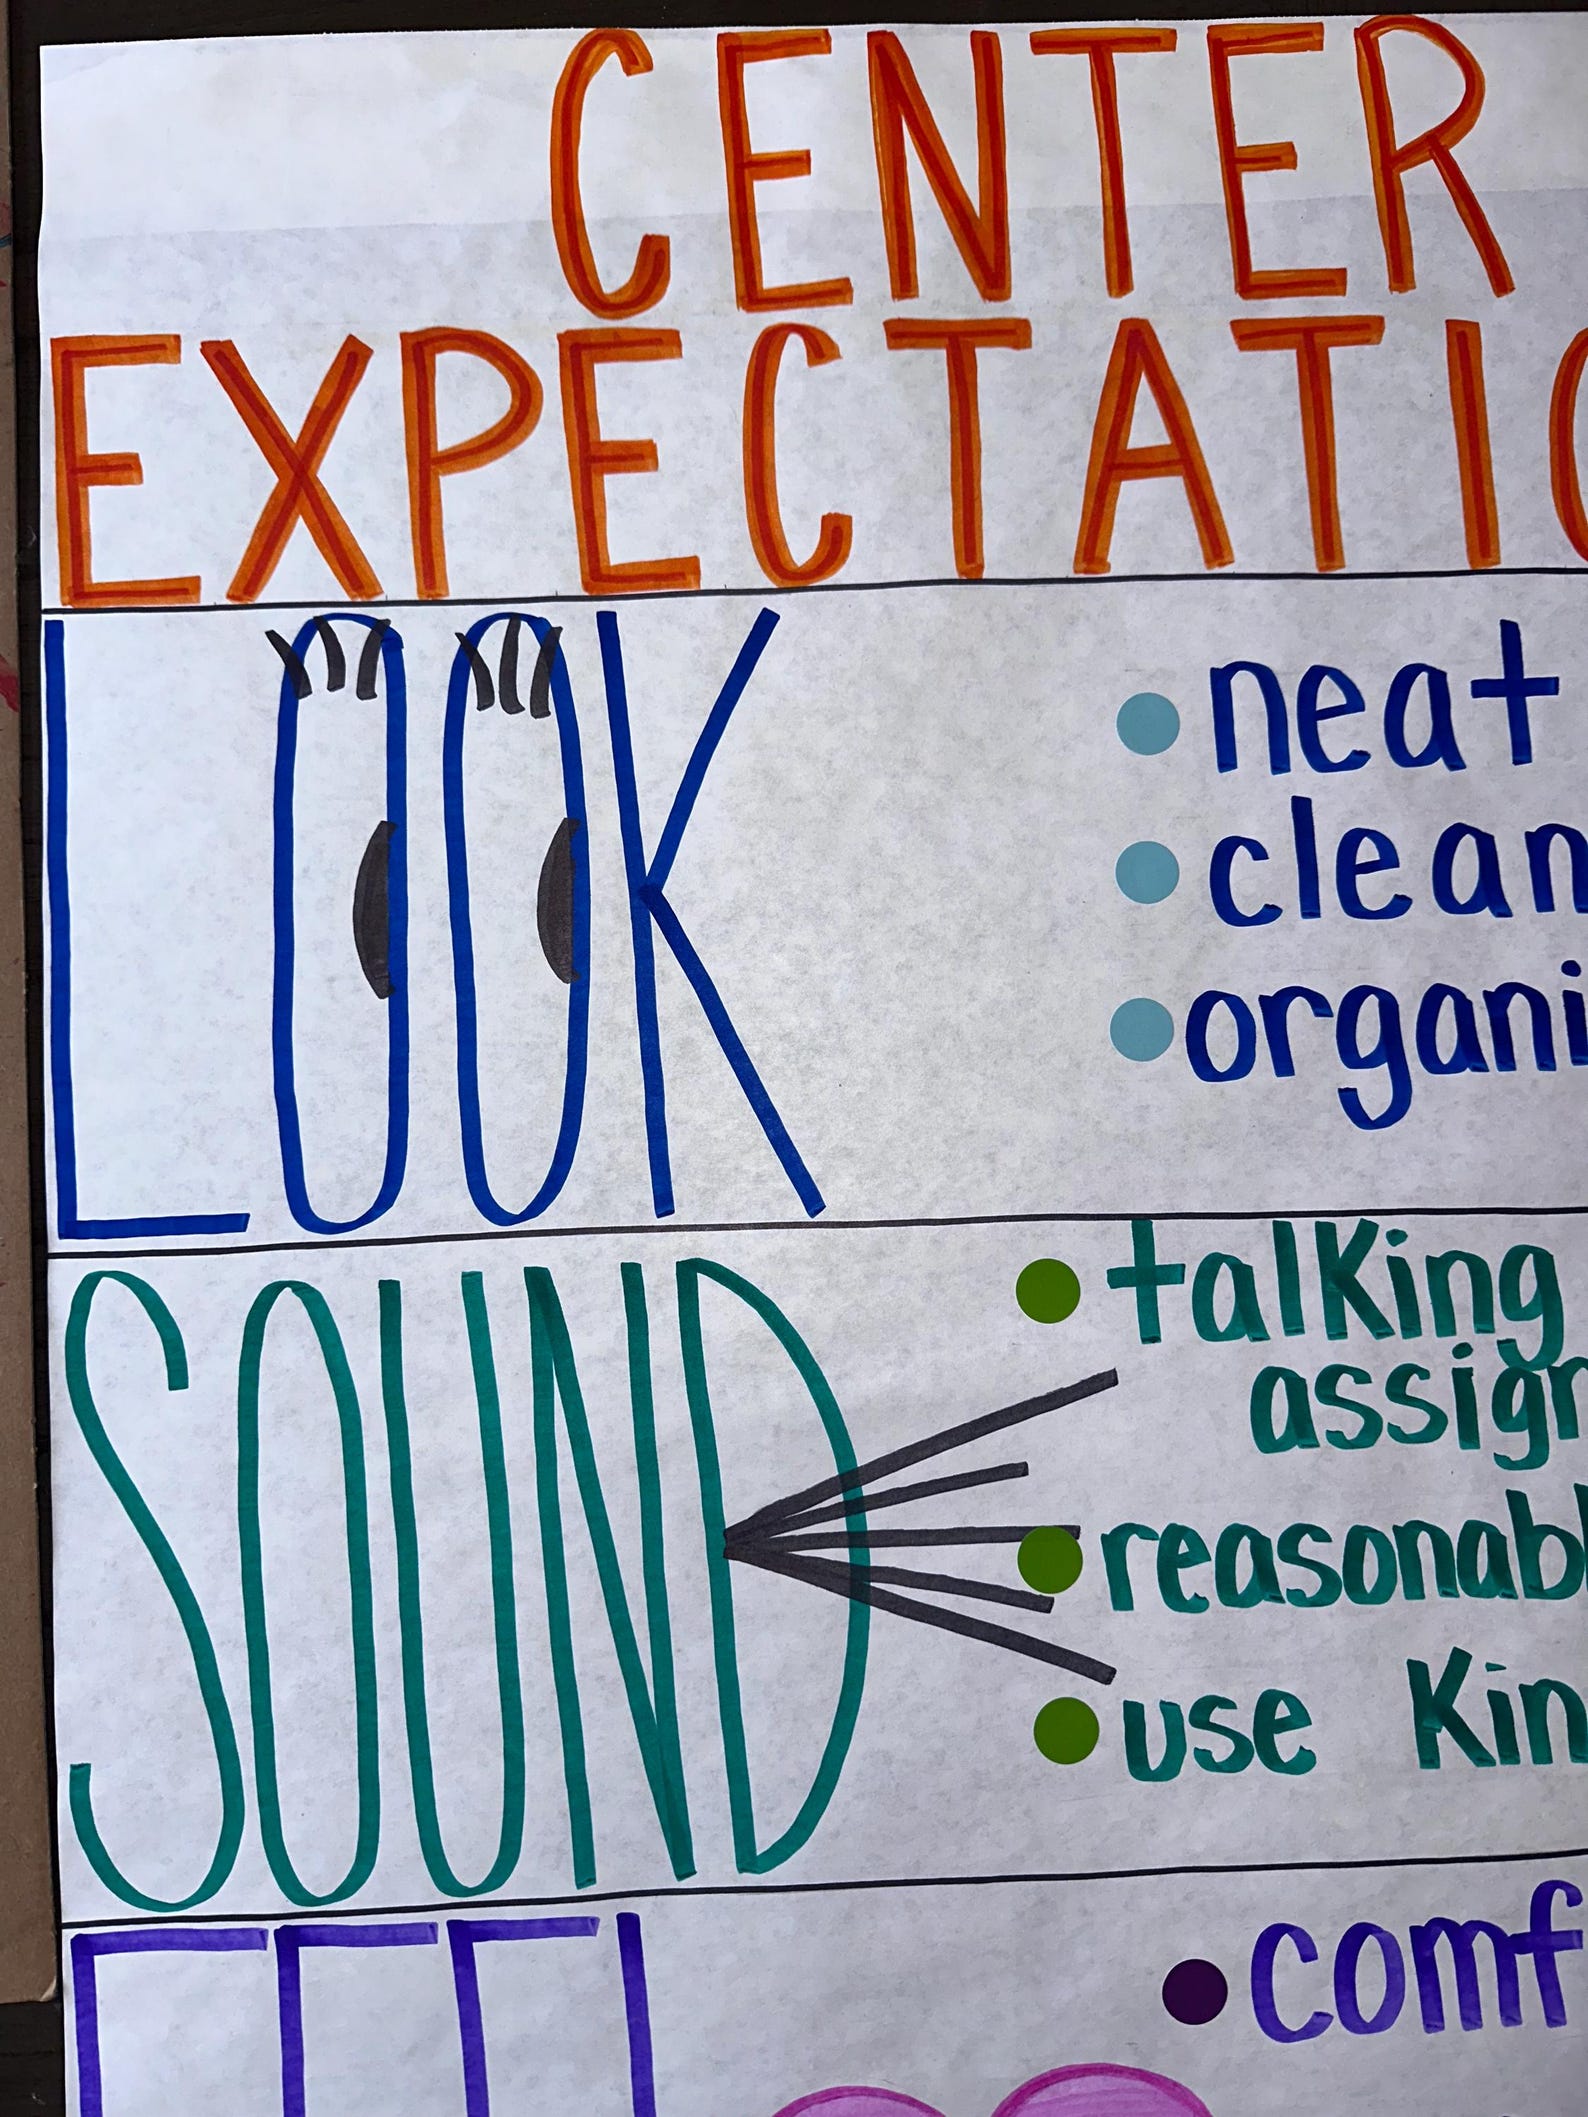 CENTER
EXPECTATIO
LOOK
neat
clean
organi
SOUND
talking
assign
reasonabl
use Kin
FEEL
comf